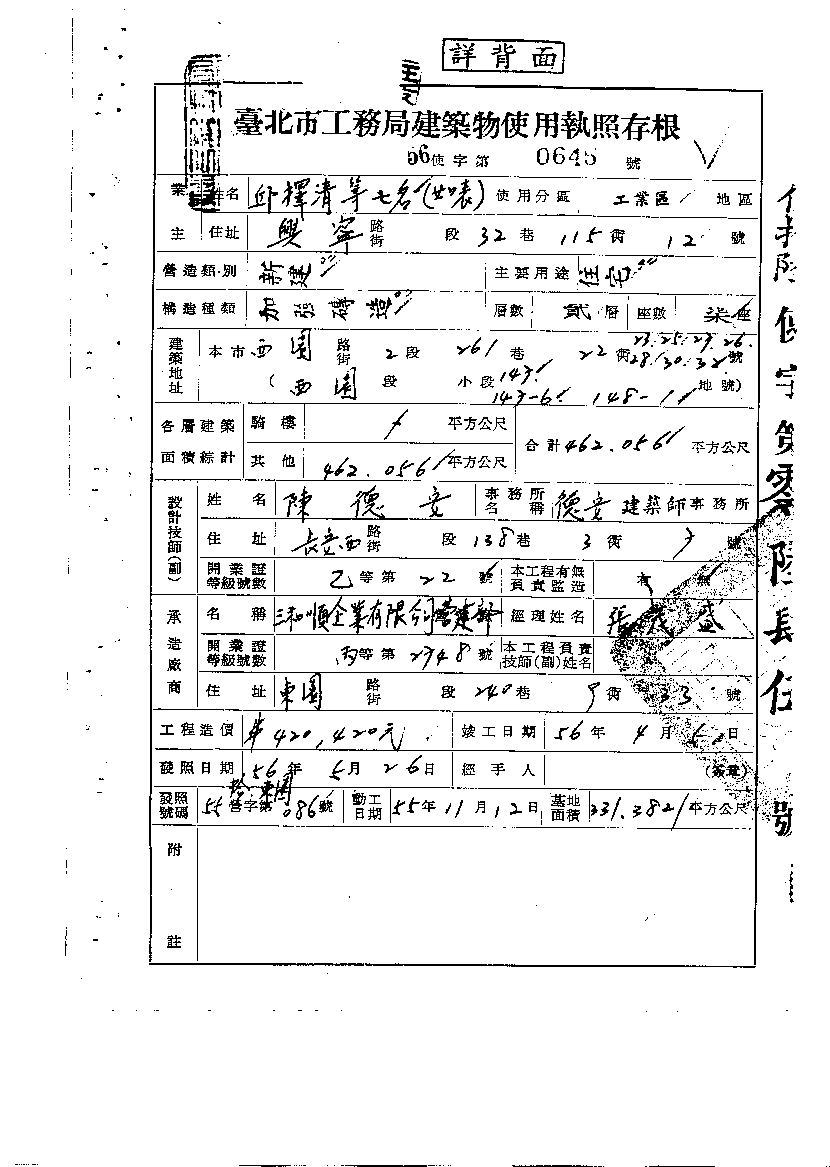 詳背面
臺北市工務局建築物使用執照存根
56使字第 0645 號
業主 姓名 邱擇清等七名(如表) 使用分區 工業區 地區
住址 興寧 路街 段 32巷 115衖 12 號
營造類別 新建 主要用途 住宅
構造種類 加強磚造 層數 貳層 座數 柒座
建築地址 本市西園 路街 2段 261巷 22衖 23.25.27.26. 28.30.32.號
(西園 段 小段 147 147-6 148-1 地號)
各層建築面積綜計 騎樓 平方公尺 合計462.056平方公尺
其他 462.056平方公尺
設計技師(副) 姓名 陳德安 事務所名稱 德安建築師事務所
住址 長安西 路街 段 138巷 3衖 7 號
開業證等級號數 乙等第 22 號 本工程有無負責監造 有 無
承造廠商 名稱 三和順企業有限公司營建部 經理姓名 張茂盛
開業證等級號數 丙等第 2348 號 本工程負責技師(副)姓名
住址 東園 路街 段 240巷 衖 33 號
工程造價 420,420元 竣工日期 56年 4月 日
發照日期 56年 5月 26日 經手人 (簽章)
發照號碼 55營字第086號 動工日期 55年11月12日 基地面積 331.382平方公尺
附註